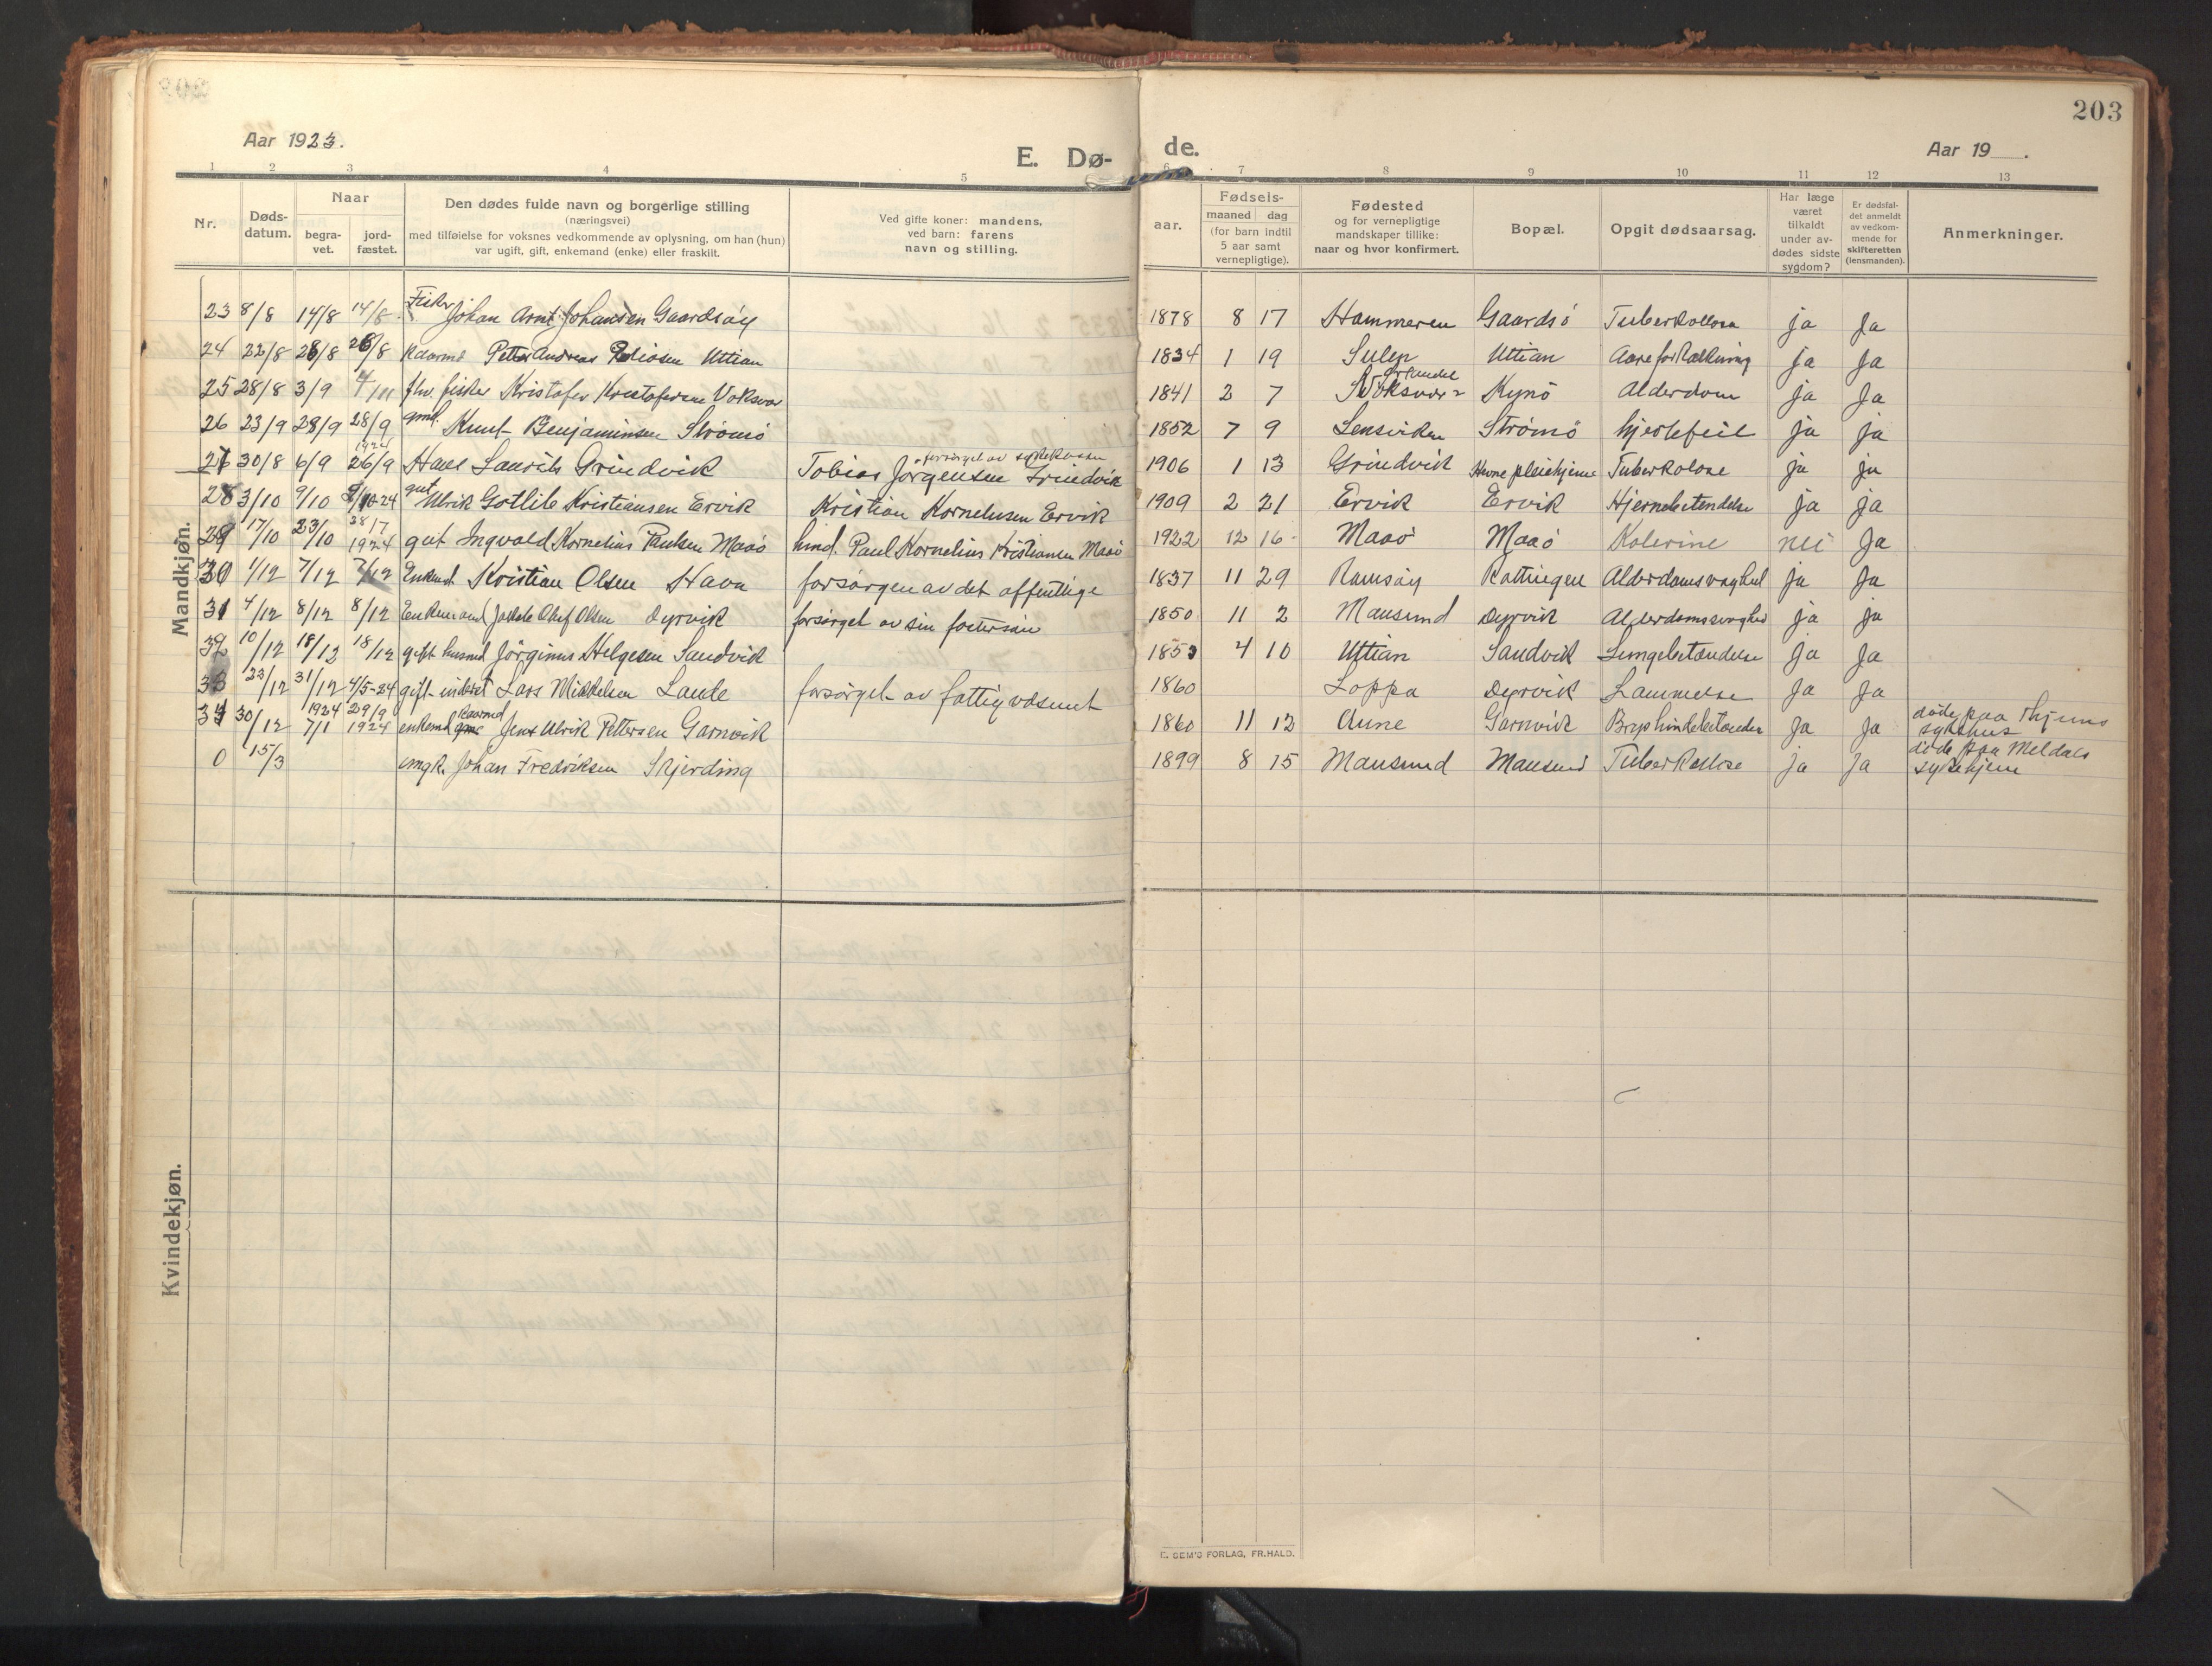 203
Aar 1923.
E. Dø-
de.
Aar 19 .
1 2 3 4 5 6 7 8 9 10 11 12 13
Nr.
Døds-
datum.
Naar
begra-
vet.
jord-
fæstet.
Den dødes fulde navn og borgerlige stilling
(næringsvei)
med tilføielse for voksnes vedkommende av oplysning, om han (hun)
var ugift, gift, enkemand (enke) eller fraskilt.
Ved gifte koner: mandens,
ved barn: farens
navn og stilling.
Fødsels-
aar.
maaned dag
(for barn indtil
5 aar samt
vernepligtige).
Fødested
og for vernepligtige
mandskaper tillike:
naar og hvor konfirmert.
Bopæl.
Opgit dødsaarsag.
Har læge
været
tilkaldt
under av-
dødes sidste
sygdom?
Er dødsfal-
det anmeldt
av vedkom-
mende for
skifteretten
(lensmanden).
Anmerkninger.
Mandkjøn.
23 8/8 14/8 14/8 Fisker Johan Arnt Johansen Gaardsøy 1878 8 17 Hammeren Gaardsø Tuberkollose ja Ja
24 22/8 28/8 28/8 Kaarmd Petter Andreas Uttian 1834 1 19 Sulen Uttian Aareforkalkning ja Ja
25 28/8 3/9 4/11 fhv. fisker Kristofer Kristofersen Voksvor 1841 2 7 Kynø Alderdom ja Ja
26 23/9 28/9 28/9 gmd. Knut Benjaminsen Strømø 1852 7 9 Lensviken Strømø hjertefeil ja ja
27 30/8 6/9 26/9 1924 Hans Laurits Grindvik Tobias Jørgensen Grindvik forsørget av sykekassen 1906 1 13 Grindvik Hevne pleiehjem Tuberkolose ja ja
28 3/10 9/10 9/10-24 gut Ulrik Gotlib Kristiansen Ervik Kristian Kornelusen Ervik 1909 2 21 Ervik Ervik Hjernebetendelse ja ja
29 17/10 23/10 1924 gut Ingvald Kornelius Paulsen Maaø hmd. Paul Kornelius Kristiansen Maaø 1922 12 16 Maaø Maaø Kolerine nei Ja
30 1/12 7/12 7/12 Enkemd. Kristian Olsen Havn forsørgen av det offentlige 1837 11 29 Ramsøy Kottingen Alderdomsvaghed ja Ja
31 4/12 8/12 8/12 Enkemand Jakob Oluf Olsen Dyrvik forsørget av sin fostersøn 1850 11 2 Mausund Dyrvik Alderdomssvaghed ja ja
32 10/12 18/12 18/12 gift husmd Jørginus Helgesen Sandvik 1853 4 10 Uttian Sandvik Lungebetændelse Ja Ja
33 23/12 31/12 4/5-24 gift inderst Lars Mikkelsen Laute forsørget av fattigvæsenet 1860 Loppa Dyrvik Lammelse Ja Ja
34 30/12 7/1 1924 29/9 1924 enkemd kaarmd Jens Ulrik Pettersen Garnvik 1860 11 12 Aune Garnvik Brysthindebetændelse Ja Ja døde paa Thjems
sykehus
0 15/3 ungk. Johan Fredriksen Skjerding 1899 8 15 Mausund Mausund Tuberkollose ja Ja døde paa Meldals
sykehjem
Kvindekjøn.
E. SEM'S FORLAG, FR.HALD.